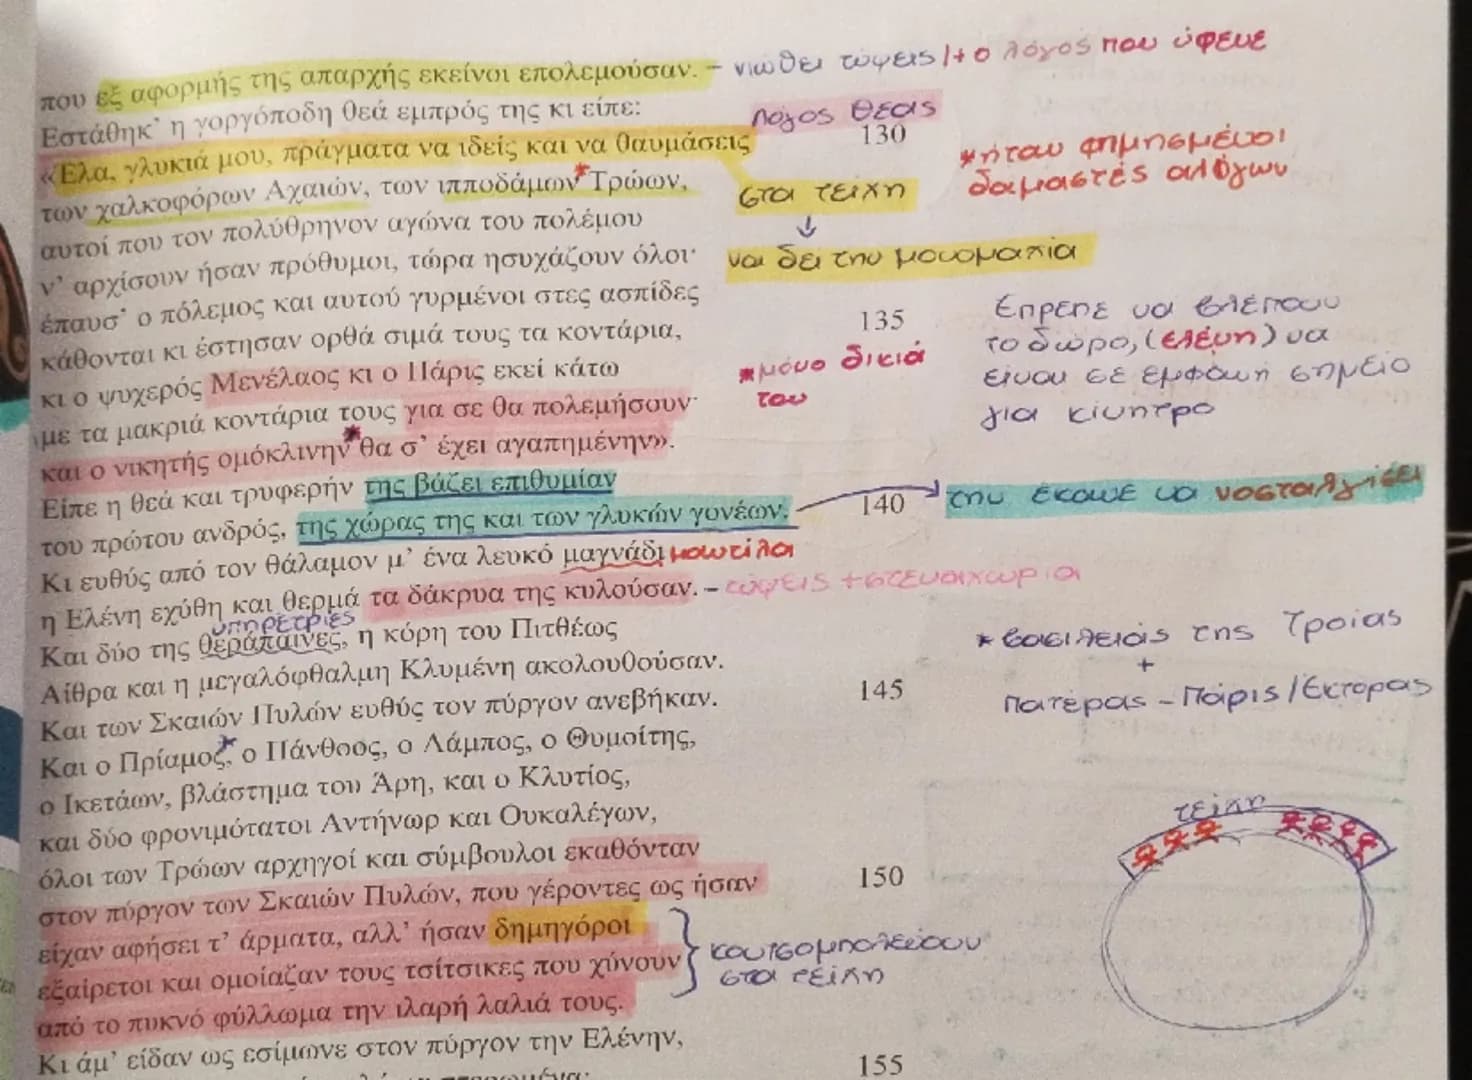 που εξ αφορμής της απαρχής εκείνοι επολεμούσαν. – νιώθει τύψεις /+ ο λόγος που ύφενε
Εστάθηκ’ η γοργόποδη θεά εμπρός της κι είπε: λόγος θεάς
«Έλα, γλυκιά μου, πράγματα να ιδείς και να θαυμάσεις 130
των χαλκοφόρων Αχαιών, των ιπποδάμων* Τρώων, στα τείχη
*ήταν φημησμένοι
δαμαστές αλόγων
αυτοί που τον πολύθρηνον αγώνα του πολέμου
↓
ν’ αρχίσουν ήσαν πρόθυμοι, τώρα ησυχάζουν όλοι· να δει την μονομαχία
έπαυσ’ ο πόλεμος και αυτού γυρμένοι στες ασπίδες
κάθονται κι έστησαν ορθά σιμά τους τα κοντάρια, 135
κι ο ψυχερός Μενέλαος κι ο Πάρις εκεί κάτω *μόνο δικιά
του
έπρεπε να βλέπουν
το δώρο, (ελένη) να
είναι σε εμφανή σημείο
για κίνητρο
με τα μακριά κοντάρια τους για σε θα πολεμήσουν·
και ο νικητής ομόκλινην* θα σ’ έχει αγαπημένην».
Είπε η θεά και τρυφερήν της βάζει επιθυμίαν
του πρώτου ανδρός, της χώρας της και των γλυκών γονέων. 140 την έκανε να νοσταλγήσει
Κι ευθύς από τον θάλαμον μ’ ένα λευκό μαγνάδι μαντίλα
η Ελένη εχύθη και θερμά τα δάκρυα της κυλούσαν. – τύψεις + στεναχώρια
υπηρέτριες
Και δύο της θεράπαινες, η κόρη του Πιτθέως
Αίθρα και η μεγαλόφθαλμη Κλυμένη ακολουθούσαν.
* βασιλειάς της Τροίας
+
πατέρας – Πάρις / Έκτορας
Και των Σκαιών Πυλών ευθύς τον πύργον ανεβήκαν. 145
Και ο Πρίαμος*, ο Πάνθοος, ο Λάμπος, ο Θυμοίτης,
ο Ικετάων, βλάστημα του Άρη, και ο Κλυτίος,
και δύο φρονιμότατοι Αντήνωρ και Ουκαλέγων,
τείχη
όλοι των Τρώων αρχηγοί και σύμβουλοι εκαθόνταν
στον πύργον των Σκαιών Πυλών, που γέροντες ως ήσαν 150
είχαν αφήσει τ’ άρματα, αλλ’ ήσαν δημηγόροι
εξαίρετοι και ομοίαζαν τους τσίτσικες που χύνουν
από το πυκνό φύλλωμα την ιλαρή λαλιά τους.
κουτσομπολεύουν
στα τείχη
Κι άμ’ είδαν ως εσίμωνε στον πύργον την Ελένην,
155